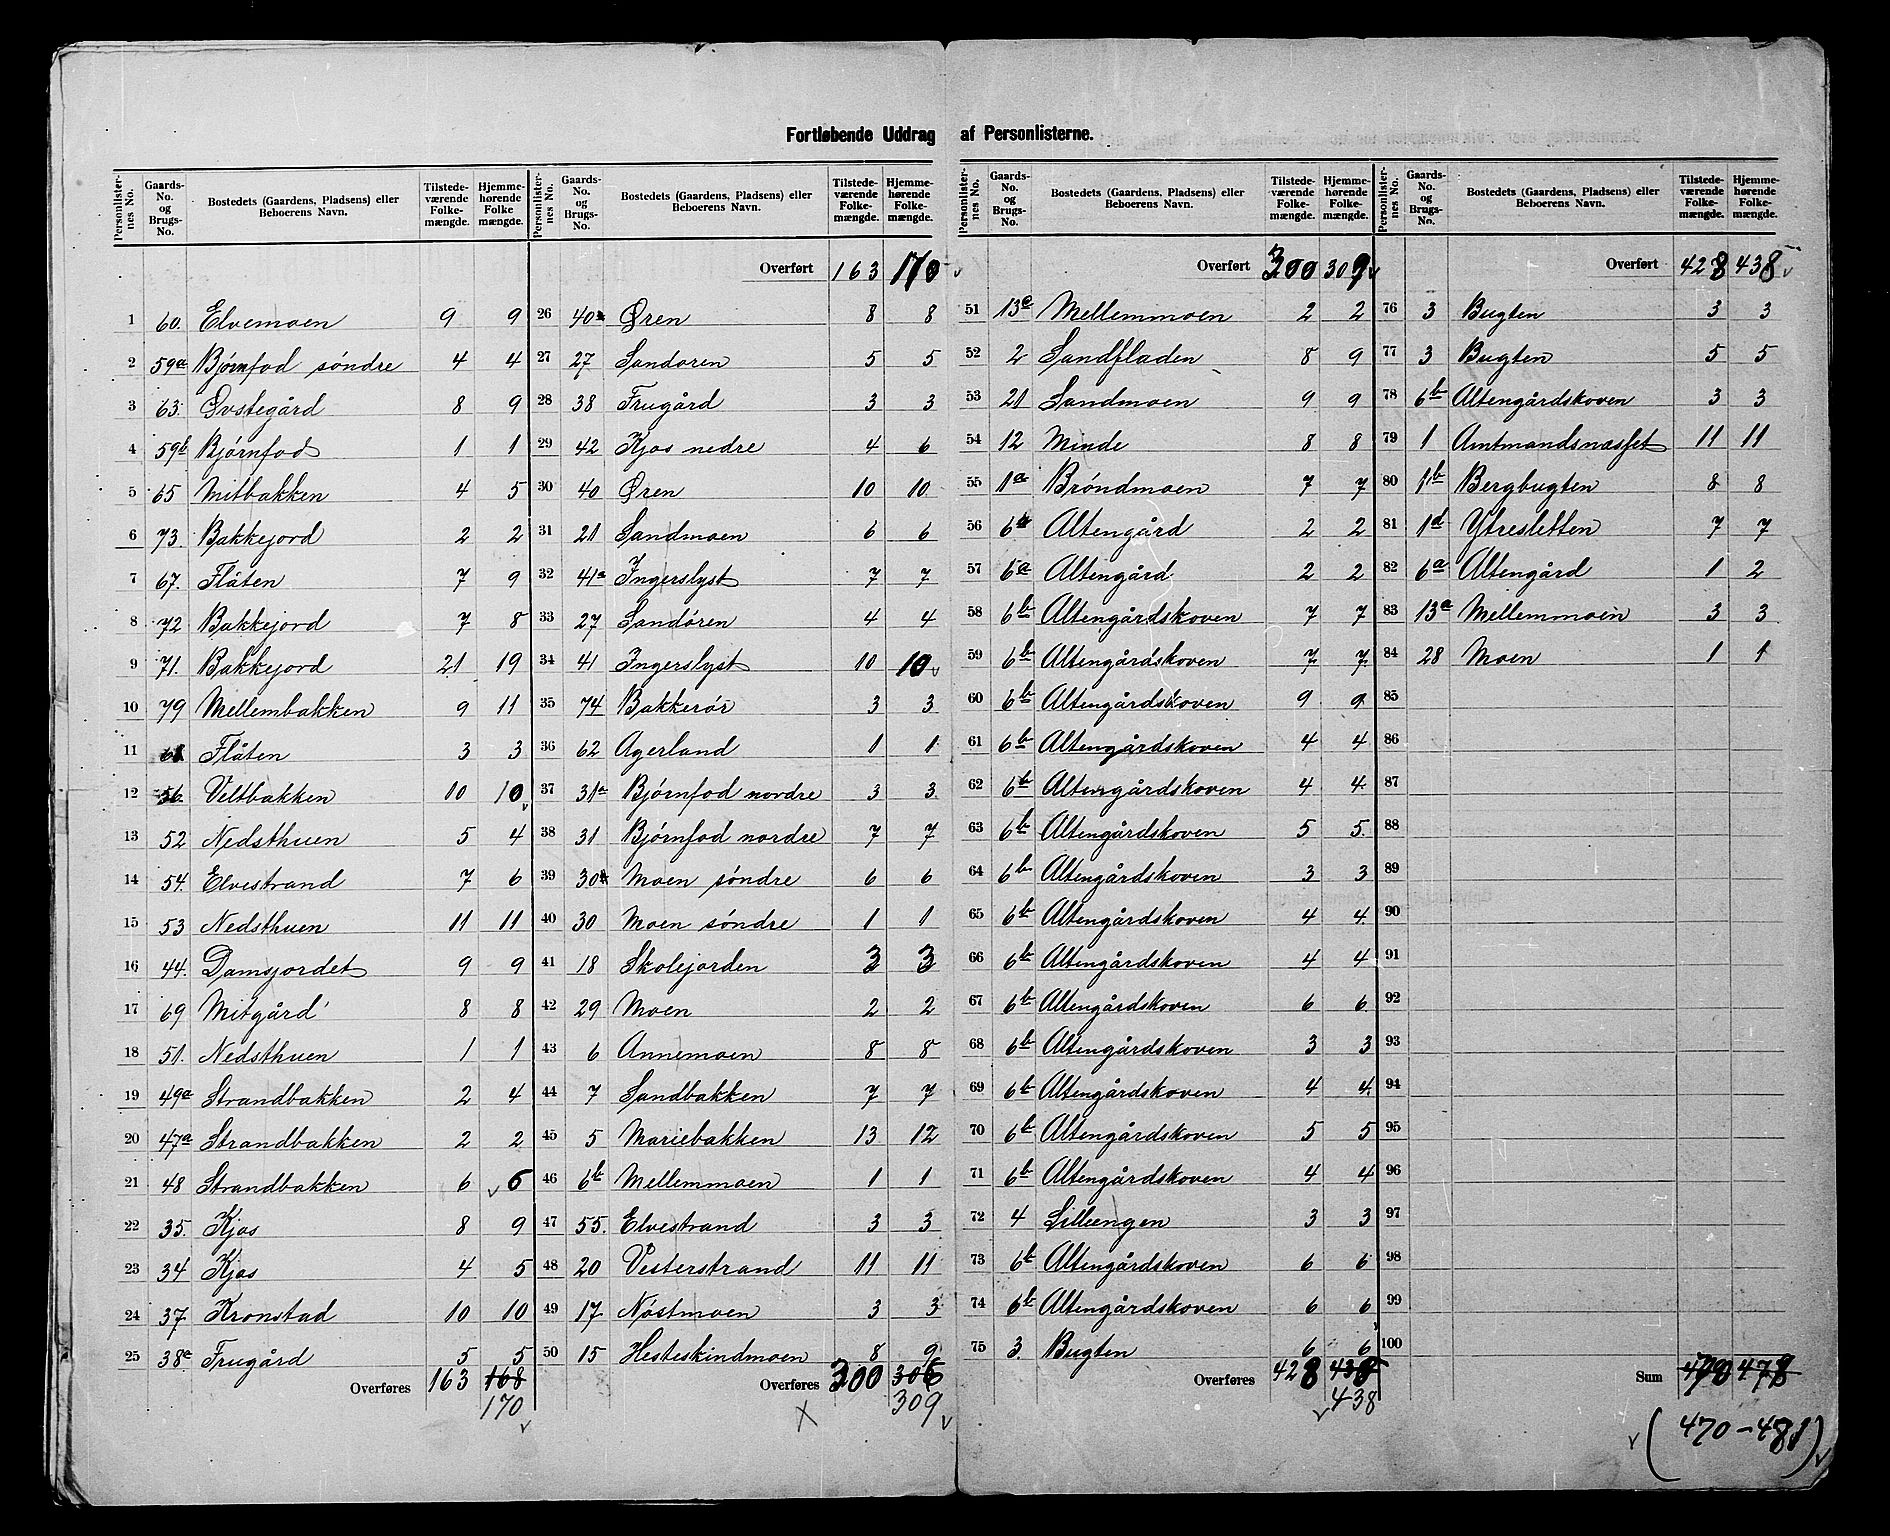 Fortløbende Uddrag af Personlisterne.
Personlister-nes No. | Gaards-No. og Brugs-No. | Bostedets (Gaardens, Pladsens) eller Beboerens Navn. | Tilstede-værende Folke-mængde. | Hjemme-hørende Folke mængde.
1 60. Elvemoen 9 9
2 59a Bjørnfod søndre 4 4
3 63. Øvstegård 8 9
4 59b Bjørnfod 1 1
5 65 Mitbakken 4 5
6 73. Bakkejord 2 2
7 67. Flåten 7 9
8 72 Bakkejord 7 8
9 71. Bakkejord 21 19
10 79 Mellembakken 9 11
11 68 Flåten 3 3
12 56. Veltbakken 10 10
13 52 Nedsthuen 5 4
14 54. Elvestrand 7 6
15 53 Nedsthuen 11 11
16 44. Damsjordet 9 9
17 69 Mitgård 8 8
18 51. Nedsthuen 1 1
19 49a Strandbakken 2 4
20 47a Strandbakken 2 2
21 48 Strandbakken 6 6
22 35. Kjos 8 9
23 34 Kjos 4 5
24 37 Kronstad 10 10
25 38a Frugård 5 5
Overføres 163 168
170
Personlister-nes No. | Gaards-No. og Brugs-No. | Bostedets (Gaardens, Pladsens) eller Beboerens Navn. | Tilstede-værende Folke-mængde. | Hjemme-hørende Folke-mængde.
Overført 163 170
26 40a Øren 8 8
27 27 Sandøren 5 5
28 38 Frugård 3 3
29 42 Kjos nedre 4 6
30 40 Øren 10 10
31 21 Sandmoen 6 6
32 41a Ingerslyst 7 7
33 27 Sandøren 4 4
34 41 Ingerslyst 10 10
35 74 Bakkerør 3 3
36 62 Agerland 1 1
37 31a Bjørnfod nordre 3 3
38 31 Bjørnfod nordre 7 7
39 30a Moen søndre 6 6
40 30 Moen søndre 1 1
41 18 Skolejorden 3 3
42 29 Moen 2 2
43 6 Annemoen 8 8
44 7 Sandbakken 7 7
45 5 Mariebakken 13 12
46 6b Mellemmoen 1 1
47 55. Elvestrand 3 3
48 20 Vesterstrand 11 11
49 17. Nøstmoen 3 3
50 15 Hesteskindmoen 8 9
Overføres 300 306
X 309
Personlister-nes No. | Gaards-No. og Brugs-No. | Bostedets (Gaardens, Pladsens) eller Beboerens Navn. | Tilstede-værende Folke-mængde. | Hjemme-hørende Folke-mængde.
Overført 300 309
51 13a Mellemmoen 2 2
52 2 Sandfladen 8 9
53 21 Sandmoen 9 9
54 12 Minde 8 8
55 1a Brøndmoen 7 7
56 6a Altengård 2 2
57 6a Altengård 2 2
58 6b Altengårdskoven 7 7
59 6b Altengårdskoven 7 7
60 6b Altengårdskoven 9 9
61 6b Altengårdskoven 4 4
62 6b Altengårdskoven 4 4
63 6b Altengårdskoven 5 5
64 6b Altengårdskoven 3 3
65 6b Altengårdskoven 4 4
66 6b Altengårdskoven 4 4
67 6b Altengårdskoven 6 6
68 6b Altengårdskoven 3 3
69 6b Altengårdskoven 4 4
70 6b Altengårdskoven 5 5
71 6b Altengårdskoven 4 4
72 4 Lilleengen 3 3
73 6b Altengårdskoven 6 6
74 6b Altengårdskoven 6 6
75 3. Bugten 6 6
Overføres 428 438
438
Personlister-nes No. | Gaards-No. og Brugs-No. | Bostedets (Gaardens, Pladsens) eller Beboerens Navn. | Tilstede-værende Folke-mængde. | Hjemme-hørende Folke-mængde.
Overført 428 438
76 3 Bugten 3 3
77 3 Bugten 5 5
78 6b Altengårdskoven 3 3
79 1 Amtmandsnæsset 11 11
80 1b Bergbugten 8 8
81 1d Ytresletten 7 7
82 6a Altengård 1 2
83 13a Mellemmoen 3 3
84 28 Moen 1 1
85
86
87
88
89
90
91
92
93
94
95
96
97
98
99
100
Sum 478
(470-481)